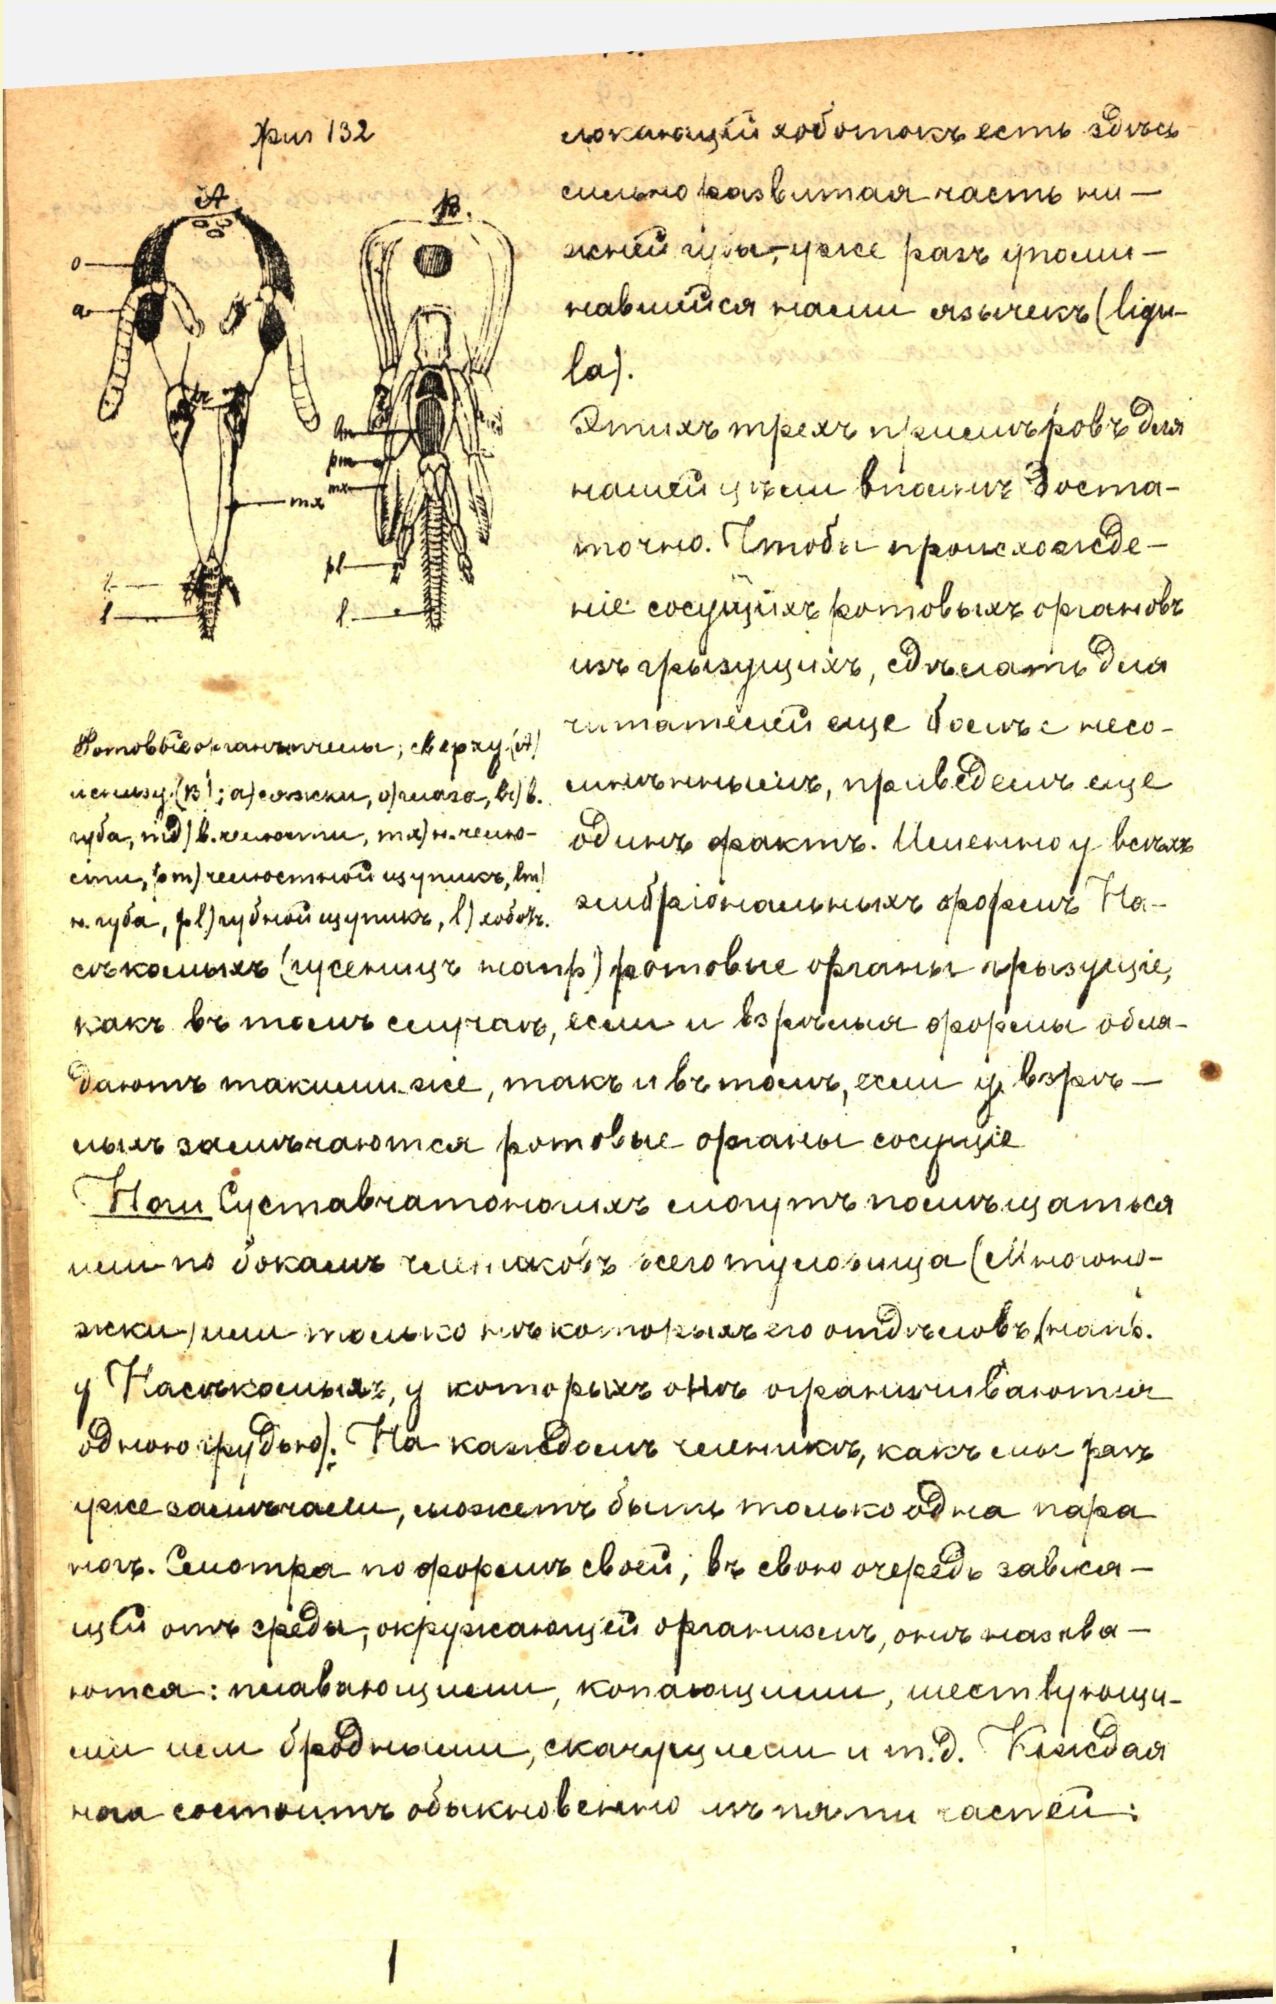 Фиг 132
A
B.
o
a
br
mx
t
l
lm
pm
mx
pl
l
Ротовые органы пчелы; сверху (A)
и снизу (B); a) сяжки, o) глаза, br) в.
губа, md) в. челюсти, mx) н. челю-
сти, pm) челюстной щупикъ, lm)
н. губа, pl) губной щупикъ, l) хобот.
локающій хоботокъ есть здѣсь
сильно развитая часть ни-
жней губы, – уже разъ упоми-
навшійся нами язычекъ (ligu-
la).
Этихъ трехъ примѣровъ для
нашей цѣли вполнѣ доста-
точно. Чтобы происхожде-
ніе сосущихъ ротовыхъ органовъ
изъ грызущихъ, сдѣлать для
читателей еще болѣе несо-
мнѣннымъ, приведемъ еще
одинъ фактъ. Именно у всѣхъ
эмбріональныхъ формъ На-
сѣкомыхъ (гусеницъ напр) ротовые органы грызущіе,
какъ въ томъ случаѣ, если и взрѣлыя формы обла-
даютъ такими же, такъ и въ томъ, если у взрѣ-
лыхъ замѣчаются ротовые органы сосущіе
Ноги Суставчатоногихъ могутъ помѣщаться
или по бокамъ члениковъ всего туловища (Многоно-
жки) или только нѣкоторыхъ его отдѣловъ (напр.
у Насѣкомыхъ, у которыхъ онѣ ограничиваются
одною грудью). На каждомъ членикѣ, какъ мы разъ
уже замѣчали, можетъ быть только одна пара
ногъ. Смотря по формѣ своей, въ свою очередь завися-
щей отъ среды, окружающей организмъ, онѣ называ-
ются: плавающими, копающими, шествующи-
ми или бродными, скачущими и т.д. Каждая
нога состоитъ обыкновенно изъ пяти частей: